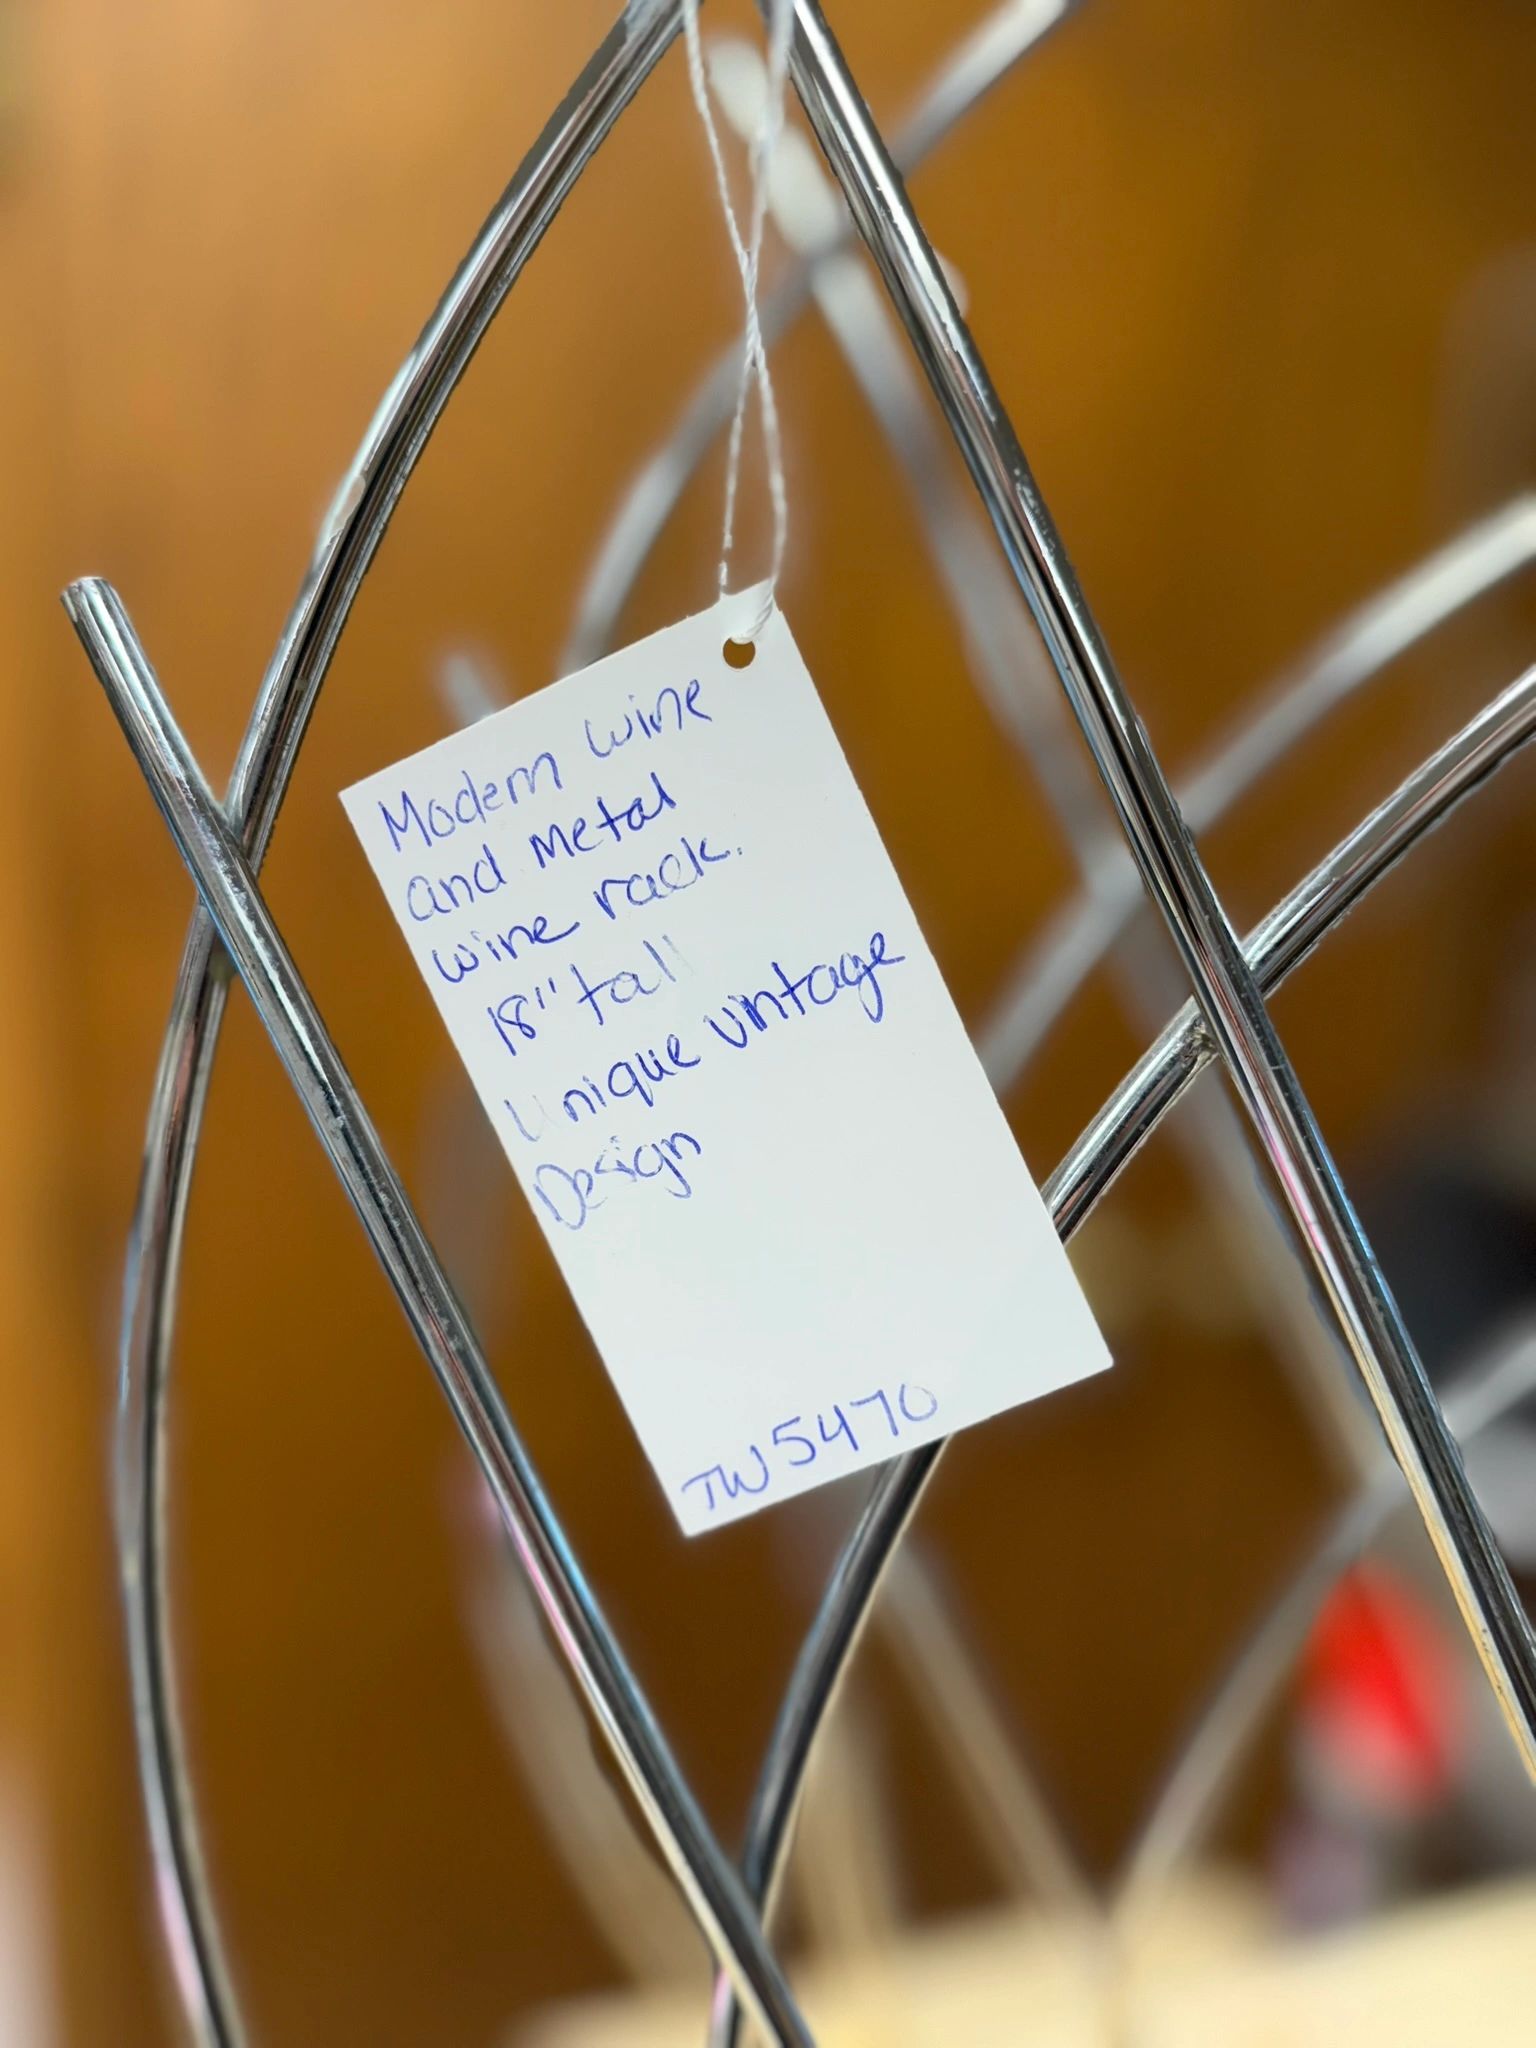 Modern wine
and metal
wine rack.
18" tall
Unique vintage
Design
TW5470